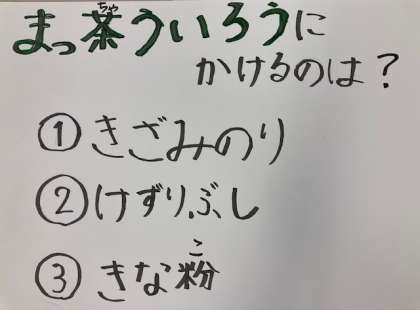 まっ茶ういろうに
かけるのは?
①きざみのり
②けずりぶし
③きな粉